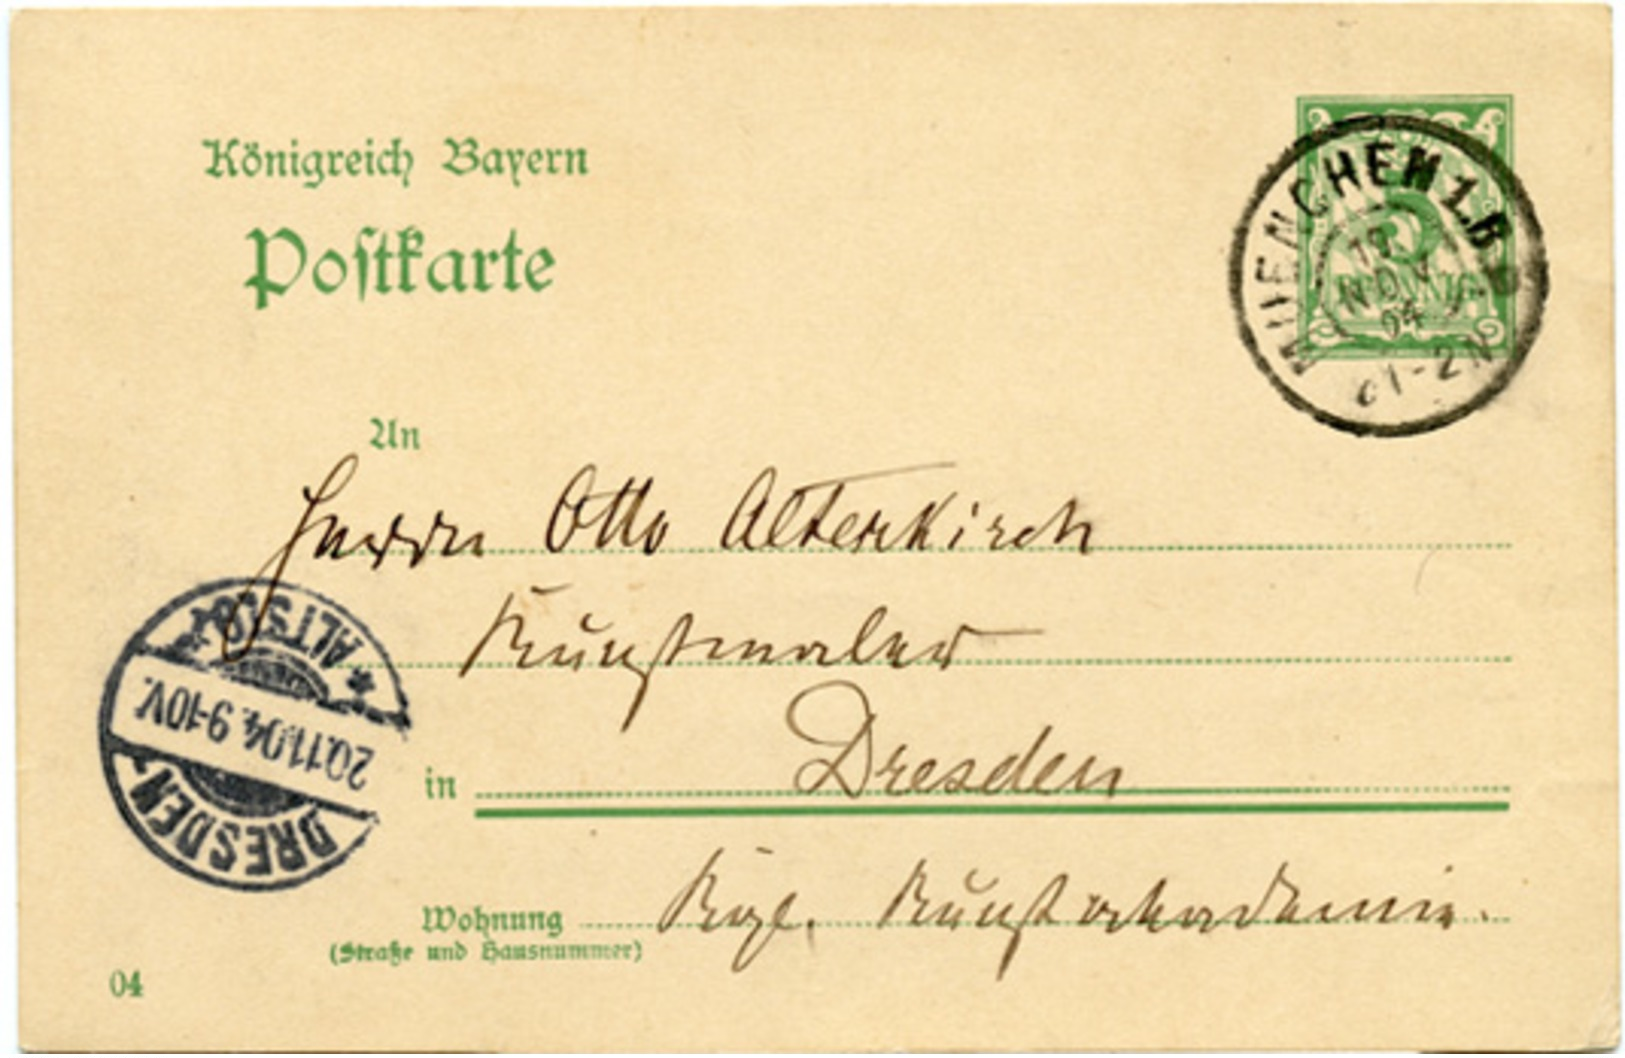 Königreich Bayern
Postkarte
MUENCHEN 1. B.P.
19.
NOV.
04
1-2 N
An
Herrn Otto Alterkirch
Kunstmaler
in Dresden
Wohnung Kgl. Kunstakademie.
(Straße und Hausnummer)
DRESDEN
20.11.04. 9-10V.
* ALTST.
04